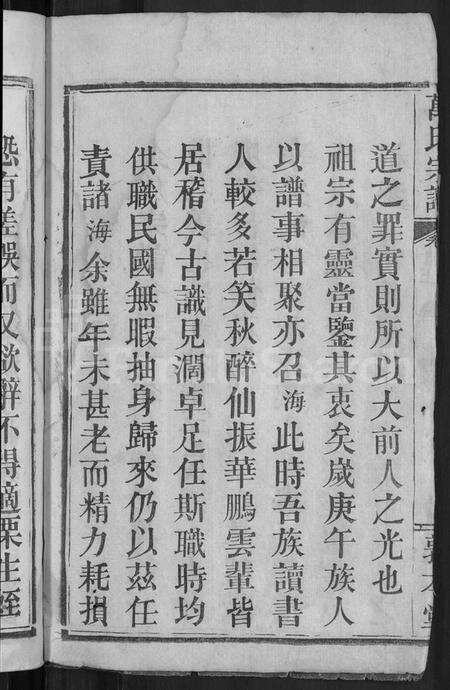 萬氏宗譜
道之罪實則所以大前人之光也
祖宗有靈當鑒其衷矣歲庚午族人
以譜事相聚亦召海此時吾族讀書
人較多若笑秋醉仙振華鵬雲輩皆
居稽今古識見濶卓足任斯職時均
供職民國無暇抽身歸來仍以茲任
責諸海余雖年未甚老而精力耗損
恐有差誤而又欲辭不得適栗生姪